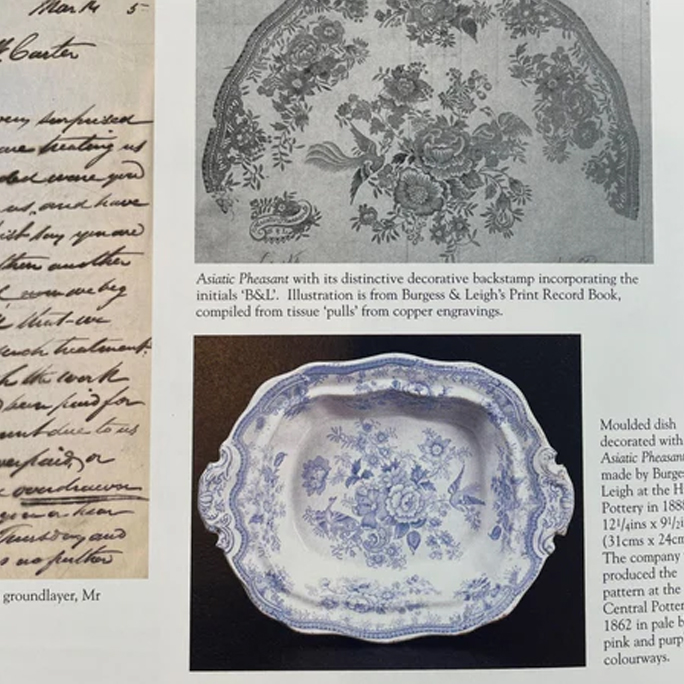 Mar 14 5
Carter
very surprised
are treating us
you
us, and have
say you are
then another
we beg
that we
such treatment
the work
been paid for
due to us
or
overdrawn
hear
Thursday and
no further
groundlayer, Mr
Asiatic Pheasant with its distinctive decorative backstamp incorporating the
initials ‘B&L’. Illustration is from Burgess & Leigh’s Print Record Book,
compiled from tissue ‘pulls’ from copper engravings.
Moulded dish
decorated with
Asiatic Pheasant
made by Burge
Leigh at the H
Pottery in 188
12¼ins x 9½i
(31cms x 24cm
The company
produced the
pattern at the
Central Potter
1862 in pale b
pink and purp
colourways.